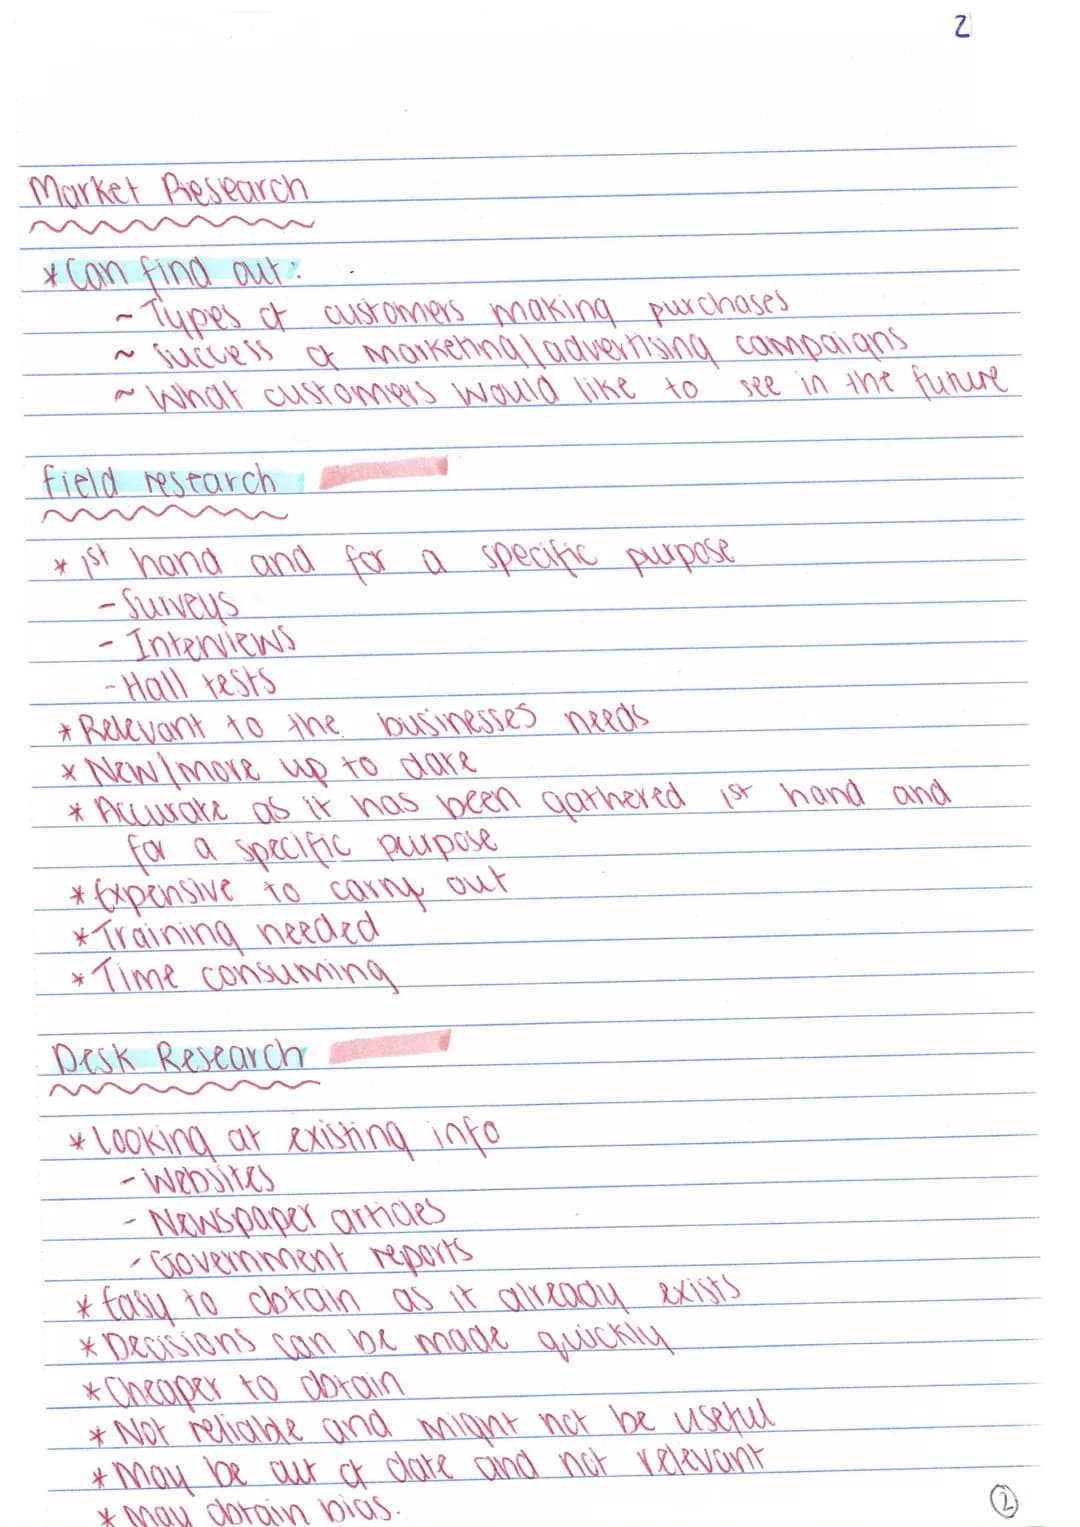 2
Market Research
* Can find out:
~ Types of customers making purchases
~ Success of marketing/advertising campaigns
~ What customers would like to see in the future
Field research
* 1st hand and for a specific purpose
- Surveys
- Interviews
- Hall tests
* Relevant to the businesses needs
* New/more up to date
* Accurate as it has been gathered 1st hand and
for a specific purpose
* Expensive to carry out
* Training needed
* Time consuming
Desk Research
* Looking at existing info
- Websites
- Newspaper articles
- Government reports
* Easy to obtain as it already exists
* Decisions can be made quickly
* Cheaper to obtain
* Not reliable and might not be useful
* May be out of date and not relevant
* May obtain bias.
2